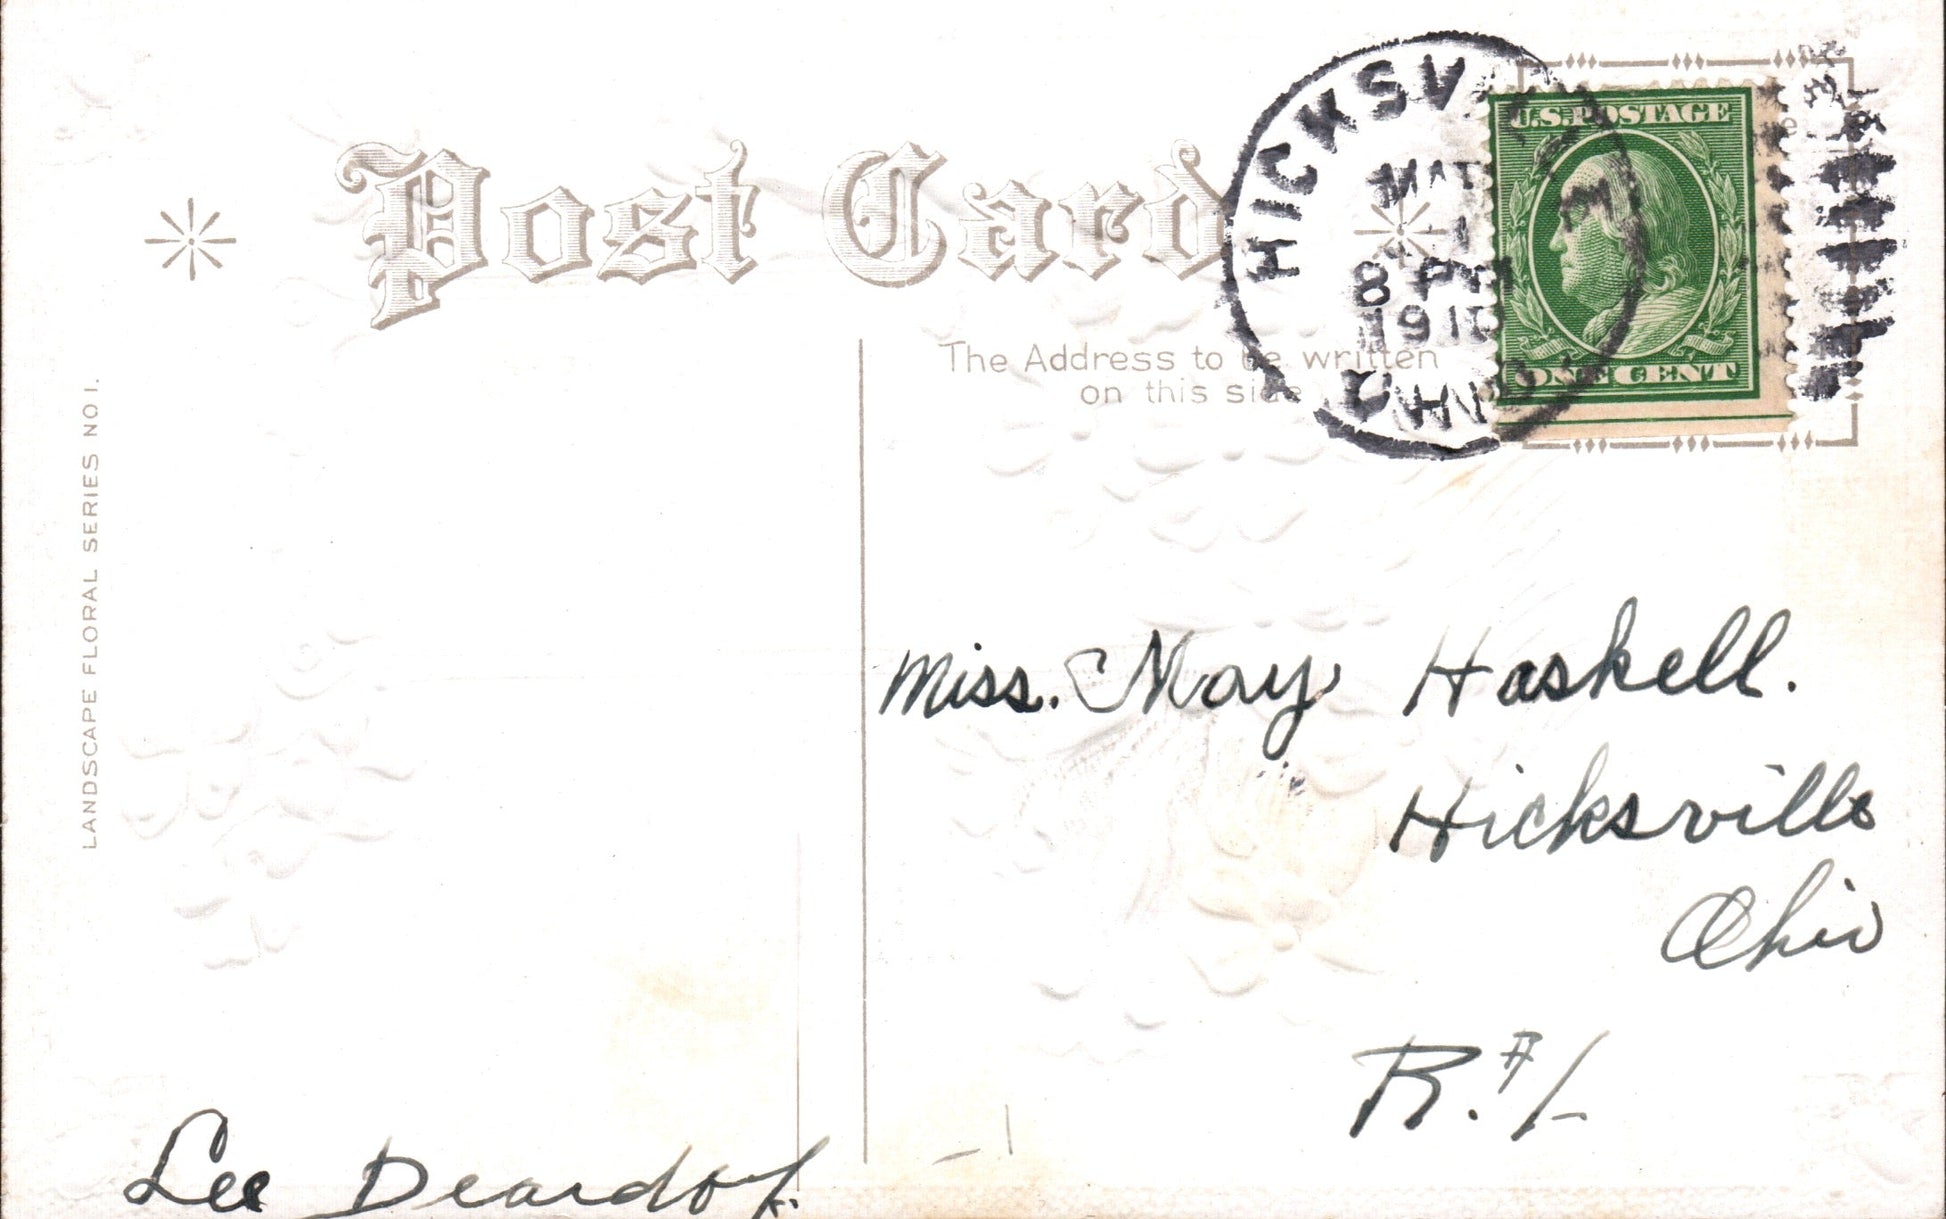 Post Card
HICKSV
8 PM
1910
OHIO
U.S.POSTAGE
ONE CENT
The Address to be written
on this side
LANDSCAPE FLORAL SERIES NO 1.
Miss. May Haskell.
Hicksville
Ohio
R. #1
Lee Deardof.